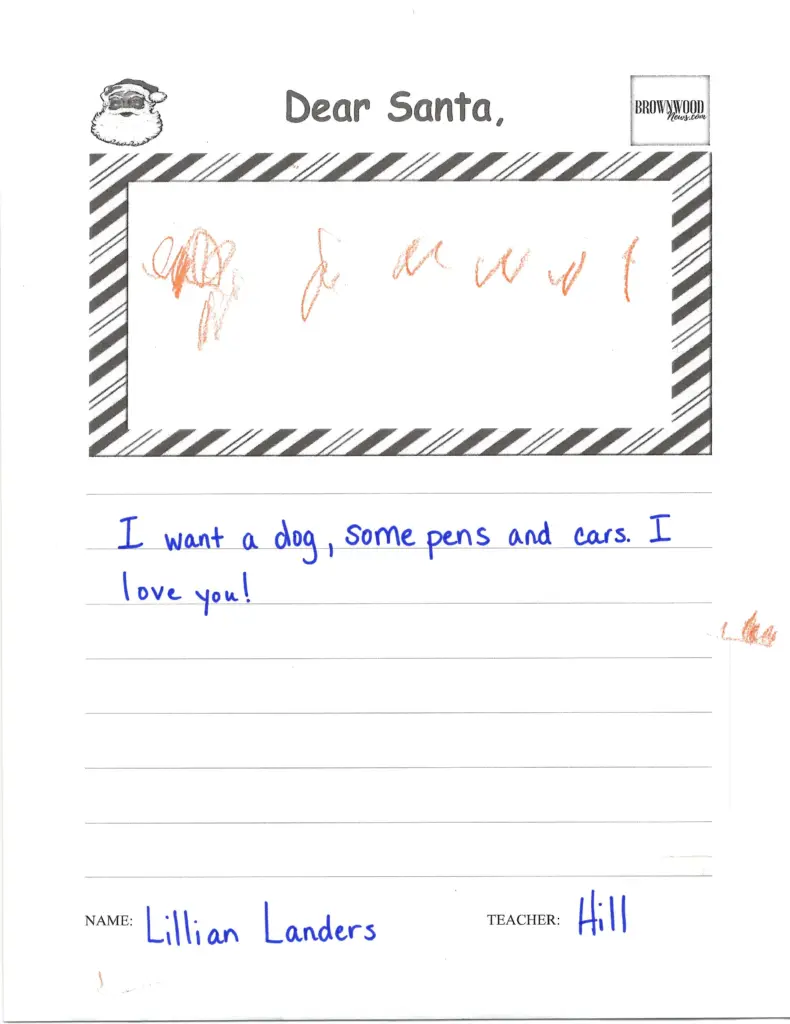 Dear Santa,
BROWNWOOD
News.com
I want a dog, some pens and cars. I
love you!
NAME: Lillian Landers TEACHER: Hill